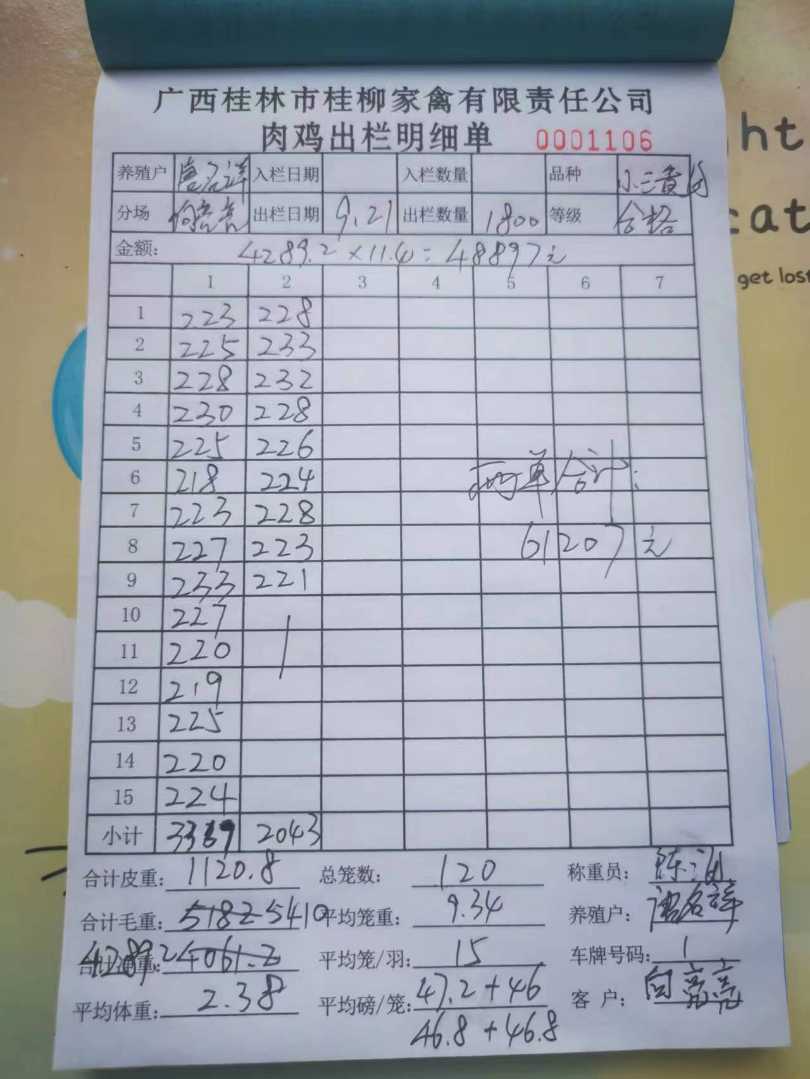 广西桂林市桂柳家禽有限责任公司
肉鸡出栏明细单 0001106
养殖户 唐名祥 入栏日期 入栏数量 品种 小三黄
分场 向亮亮 出栏日期 9.21 出栏数量 1800 等级 合格
金额: 4289.2×11.4=48897元
1 2 3 4 5 6 7
1 223 228
2 225 233
3 228 232
4 230 228
5 225 226
6 218 224
7 223 228
8 227 223
9 233 221
10 227
11 220
12 219
13 225
14 220
15 224
两单合计:
61207元
小计 2043
合计皮重: 1120.8 总笼数: 120 称重员:
合计毛重: 5182 5410 平均笼重: 9.34 养殖户: 唐名祥
4289.2 4061.2 平均笼/羽: 15 车牌号码: 1
平均体重: 2.38 平均磅/笼: 47.2+46 客户: 向亮亮
46.8+46.8
ht
cat
get lost